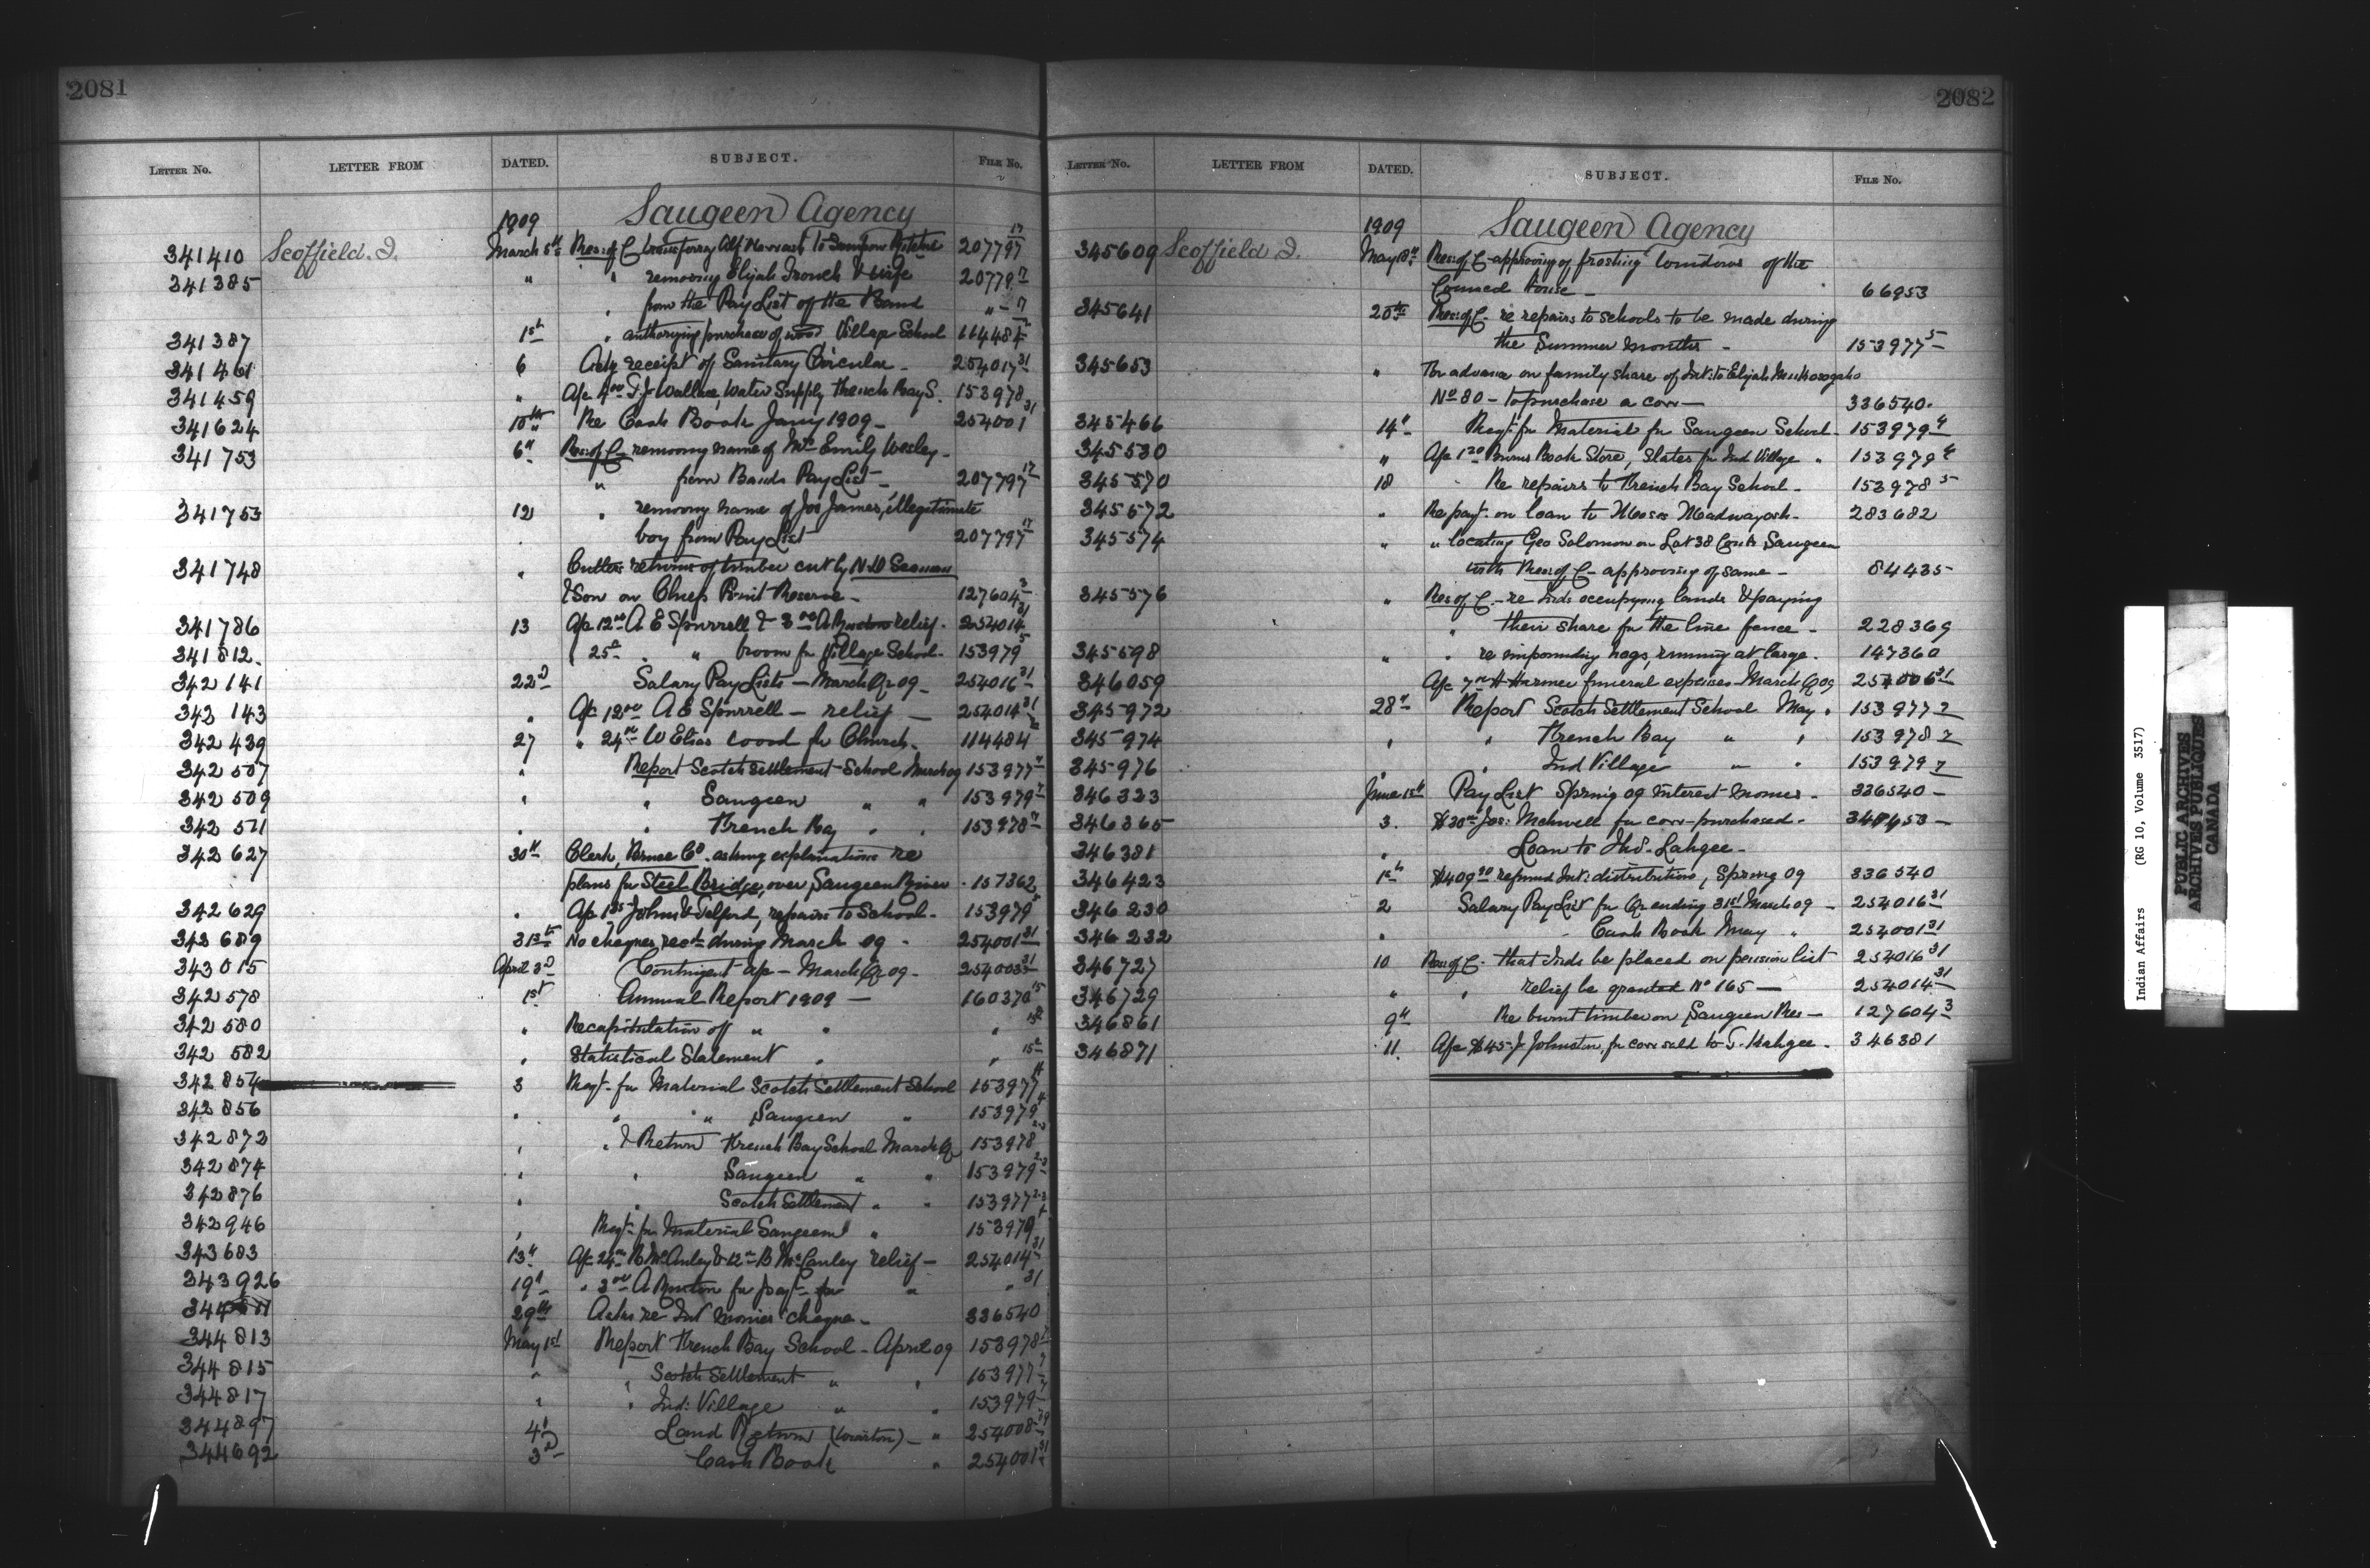 2081
LETTER NO. LETTER FROM DATED. SUBJECT. FILE NO.
1909 Saugeen Agency
341410 Scoffield. J. March 5th Res: of C transferring Alf to 207797 17
341385 " " removing Elijah Ironch & wife 20779 17
" from the Pay List of the Band " - 17
341387 1st " authorizing purchase of wood Village School 114484
341461 6 Ackg receipt of Sanitary Circular - 254017 31
341459 " A/c 4 00 T. J. Wallace, Water Supply French Bay S. 153978
341624 10th Re Cash Book Jany 1909 - 254001 31
341753 6" Res: of C - removing name of Mrs Emily Wesley -
" from Bands Pay List - 207797 17
341753 12 " removing name of Jos James, illegitimate
boy from Pay List 207797 17
341748 " Cullers returns of timber cut by N. D Seaman
& Son on Chiefs Point Reserve - 127604 3
341786 13 A/c 12 00 A E Spurrell & 3 00 A relief. 254014 31
341812. " 25c " broom for Village School - 153979 5
342141 22d Salary Pay Lists - March Qr 09 - 254016 31
342143 " A/c 12 00 A E Spurrell - relief - 254014 31
342439 27 " 24 00 W Elias wood for Church. 114484
342507 " Report Scotch Settlement School March 09 153977 7
342509 " " Saugeen " " 153979 7
342511 " " French Bay " " 153978 7
342627 30th Clerk, Bruce Co. asking explanations re
plans for Steel Bridge, over Saugeen River - 157362
342629 " A/c 1 35 Johns & Telford, repairs to School - 153979 5
342689 31st No cheques recd during March 09 - 254001 31
343015 April 3d Contingent a/c - March Qr 09 - 254003 31
342578 1st Annual Report 1909 - 160370 15
342580 " Recapitulation of " " " 15
342582 " Statistical Statement " " 15
342854 3 Reqt. for Material Scotch Settlement School 153977 4
342856 " " " Saugeen " 153979 4
342872 " " & Return French Bay School March Qr 153978 2-3
342874 " " Saugeen " " 153979 2-3
342876 " " Scotch Settlement " " 153977 2-3
342946 " Reqt. for Material Saugeen " 153979 4
343683 13" A/c 24 00 R McAuley & 12 00 B McCauley relief - 254014 31
343926 19" " 3 00 A for " " 31
29th Acks re Int monies cheque - 336540
344813 May 1st Report French Bay School - April 09 153978 7
344815 " " Scotch Settlement " " 153977 7
344817 " " Ind: Village " " 153979 7
344897 4" Land Return (Wiarton) - " 254008 29
344692 3d Cash Book " 254001 31
2082
LETTER NO. LETTER FROM DATED. SUBJECT. FILE NO.
1909 Saugeen Agency
345609 Scoffield J. May 18th Res: of C - approving of frosting windows of the
Council House - 66953
345641 20th Res: of C - re repairs to schools to be made during
the Summer months - 153977 5
345653 " For advance on family share of Int: to Elijah
No 80 - to purchase a cow - 336540.
345466 14" Reqt. for Material for Saugeen School - 153979 4
345530 " A/c 1 20 Burns Book Store, Slates for Ind Village " 153979 4
345570 18 Re repairs to French Bay School - 153978 5
345572 " Re payt. on loan to Moses Madwayosh - 283682
345574 " " locating Geo Solomon on Lot 38 Saugeen
with Res: of C - approving of same - 84435
345576 " Res of C. - re Inds occupying lands & paying
" their share for the line fence - 228369
345598 " " re impounding hogs, running at large. 147360
346059 A/c 7 00 H Harmer funeral expenses - March Qr 09 254006 31
345972 28" Report Scotch Settlement School May. 153977 7
345974 " " French Bay " " 153978 7
345976 " " Ind Village " " 153979 7
346323 June 15th Pay List Spring 09 Interest monies - 336540 -
346365 3. $30 00 Jos: for cow - purchased -
346381 " Loan to Thos. Kahgee -
346423 1st $409 90 refund Int: distribution, Spring 09 336540
346230 2 Salary Pay List for Qr ending 31st March 09 - 254016 31
346232 " Cash Book May " 254001 31
346727 10 Res: of C - that Inds be placed on pension list 254016 31
346729 " " relief be granted No 165 - 254014 31
346861 9" Re burnt timber on Saugeen Res - 127604 3
346871 11. A/c $45 - J. Johnston, for cow sold to T. Kahgee - 346381
Indian Affairs (RG 10, Volume 3517)
PUBLIC ARCHIVES
ARCHIVES PUBLIQUES
CANADA